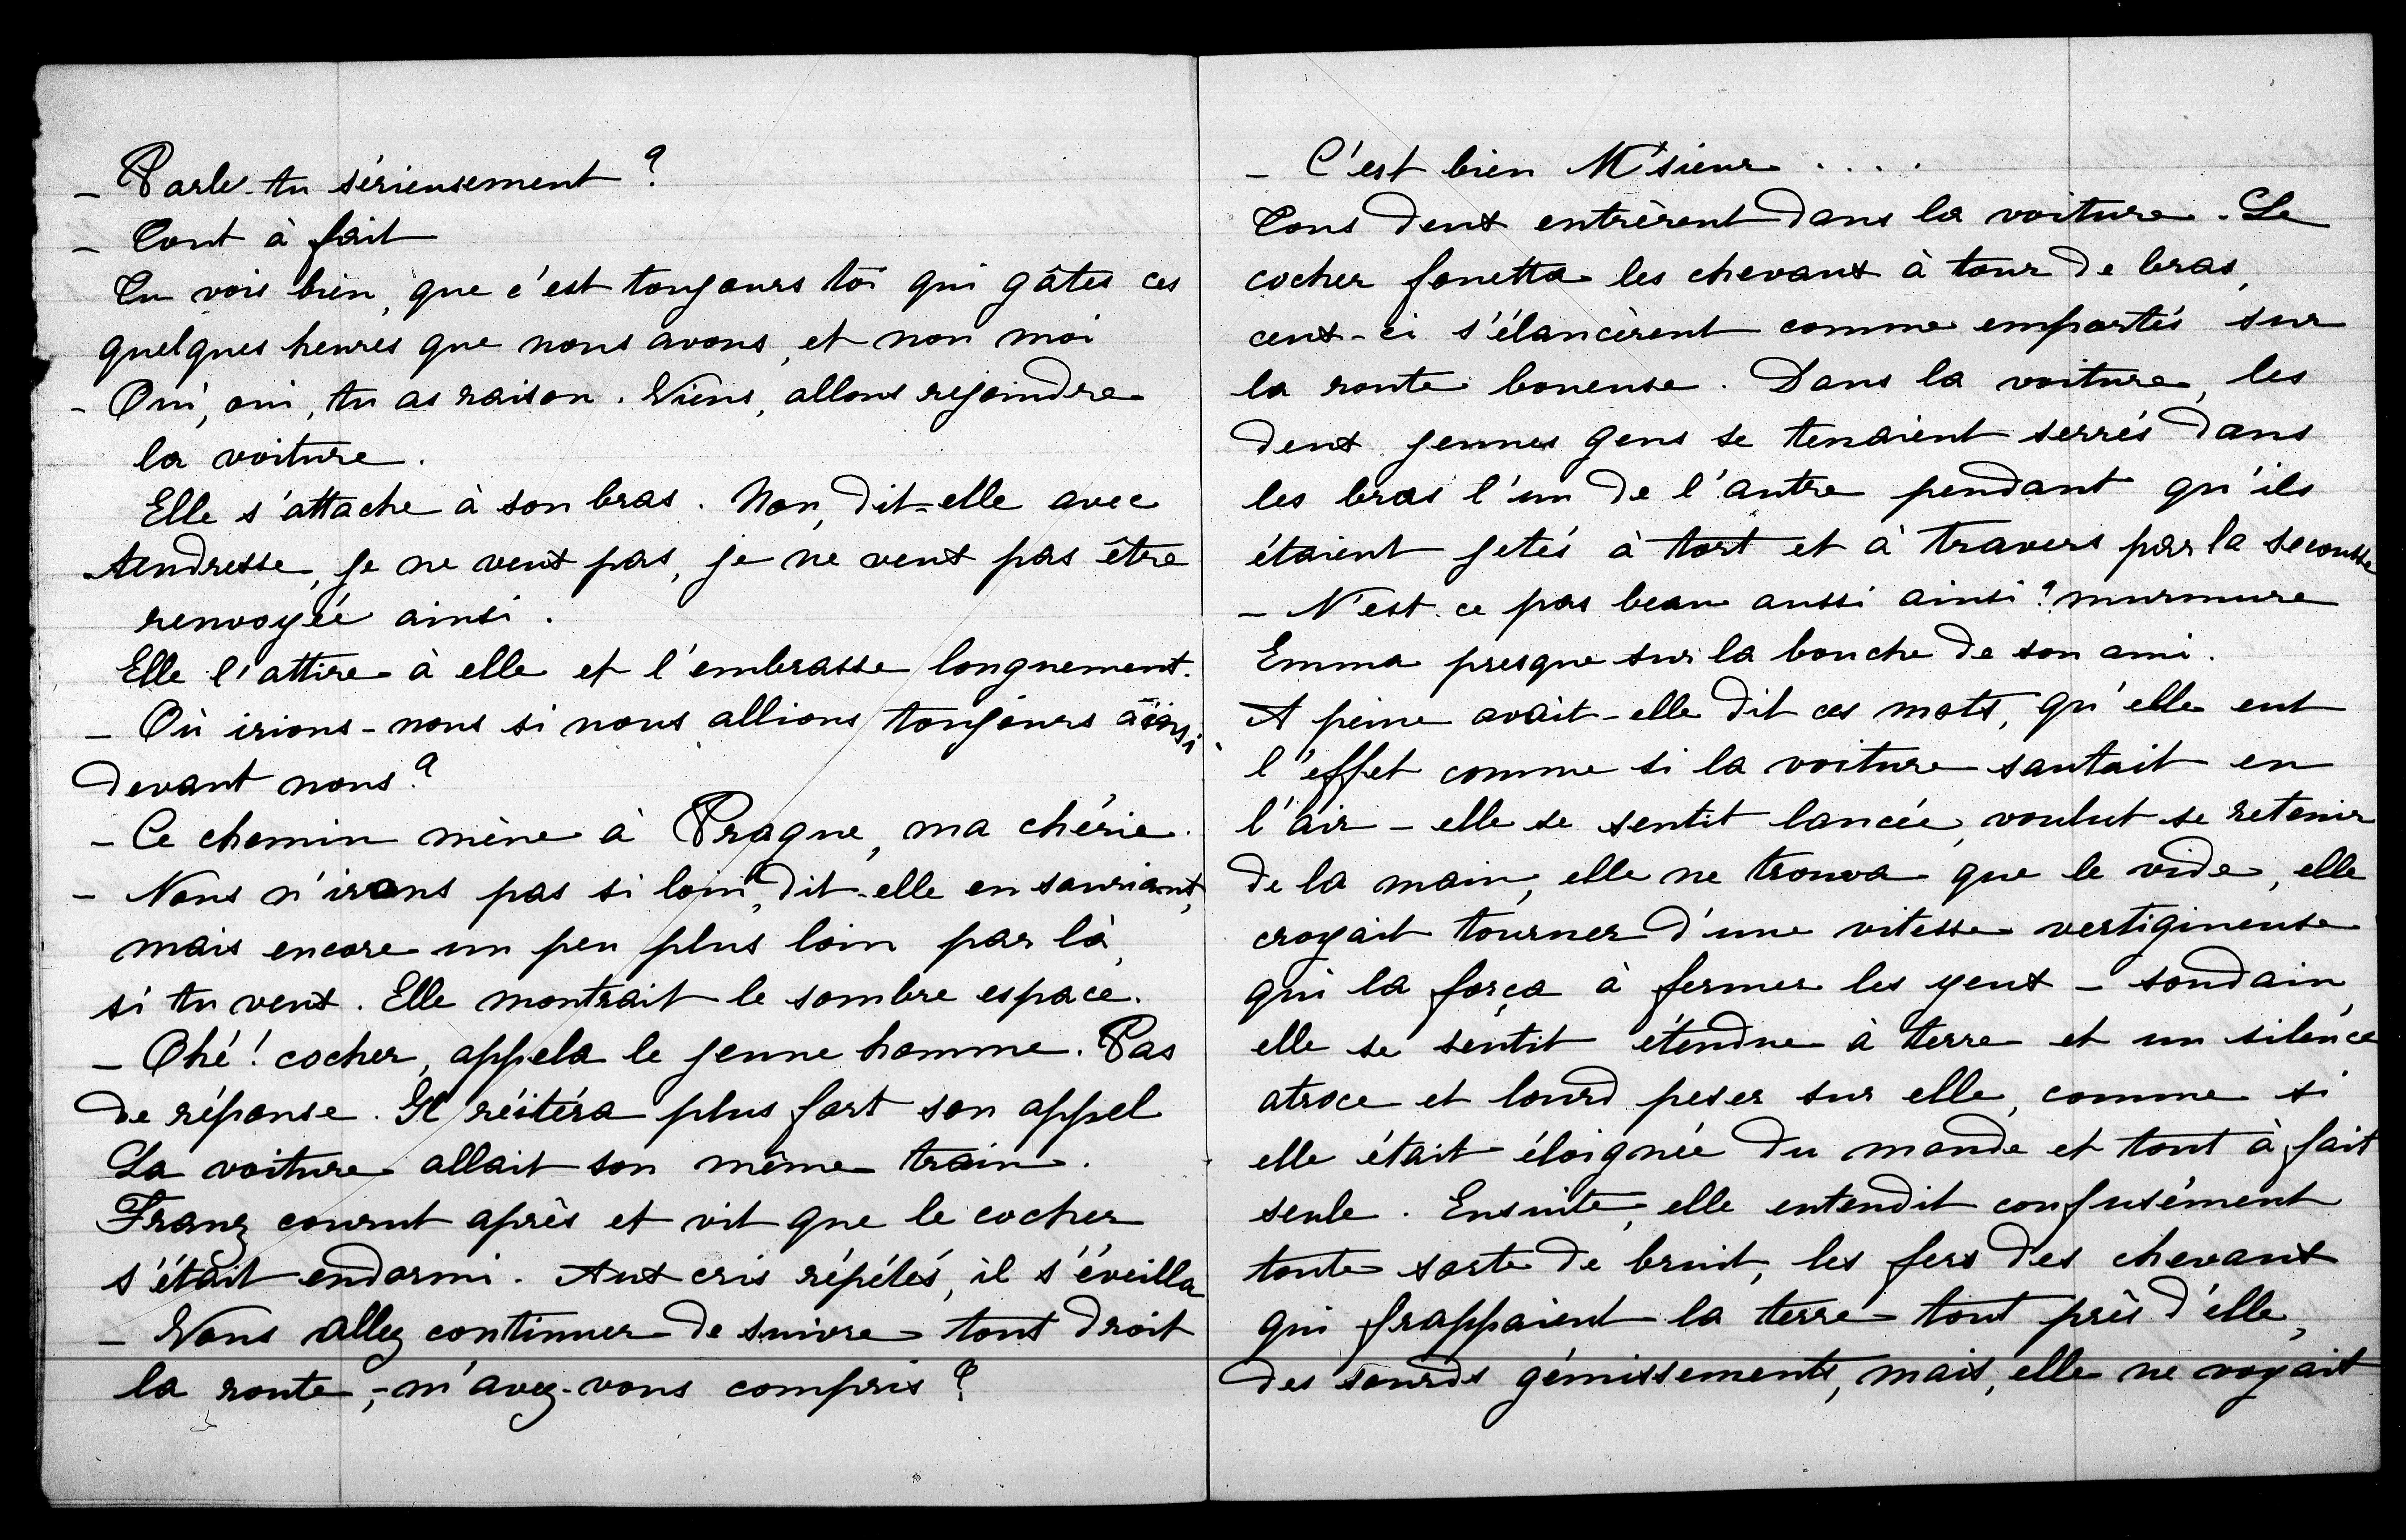 - Parle-tu sérieusement ?
- Tout à fait
Tu vois bien, que c'est toujours toi qui gâtes ces
quelques heures que nous avons, et non moi
- Oui, oui, tu as raison. Viens, allons rejoindre
la voiture.
Elle s'attache à son bras. Non, dit-elle avec
tendresse, je ne veux pas, je ne veux pas être
renvoyée ainsi.
Elle l'attire à elle et l'embrasse longuement.
- Où irions-nous si nous allions toujours ainsi
devant nous ?
- Ce chemin mène à Prague, ma chérie.
- Nous n'irons pas si loin, dit-elle en souriant,
mais encore un peu plus loin par là,
si tu veux. Elle montrait le sombre espace.
- Ohé ! cocher, appela le jeune homme. Pas
de réponse. Il réitéra plus fort son appel
La voiture allait son même train.
Franz courut après et vit que le cocher
s'était endormi. Aux cris répétés, il s'éveilla
- Vous allez continuer de suivre tout droit
la route, - m'avez-vous compris ?
- C'est bien M'sieur ....
Tous deux entrèrent dans la voiture. Le
cocher fouetta les chevaux à tour de bras,
ceux-ci s'élancèrent comme emportés sur
la route boueuse. Dans la voiture, les
deux jeunes gens se tenaient serrés dans
les bras l'un de l'autre pendant qu'ils
étaient jetés à tort et à travers par la secousse
- N'est-ce pas beau aussi ainsi ? murmure
Emma presque sur la bouche de son ami.
A peine avait-elle dit ces mots, qu'elle eut
l'effet comme si la voiture sautait en
l'air - elle se sentit lancée, voulut se retenir
de la main, elle ne trouva que le vide, elle
croyait tourner d'une vitesse vertigineuse
qui la força à fermer les yeux - soudain,
elle se sentit étendue à terre et un silence
atroce et lourd peser sur elle, comme si
elle était éloignée du monde et tout à fait
seule. Ensuite, elle entendit confusément
toute sorte de bruit, les fers des chevaux
qui frappaient la terre tout près d'elle,
des sourds gémissements, mais, elle ne voyait